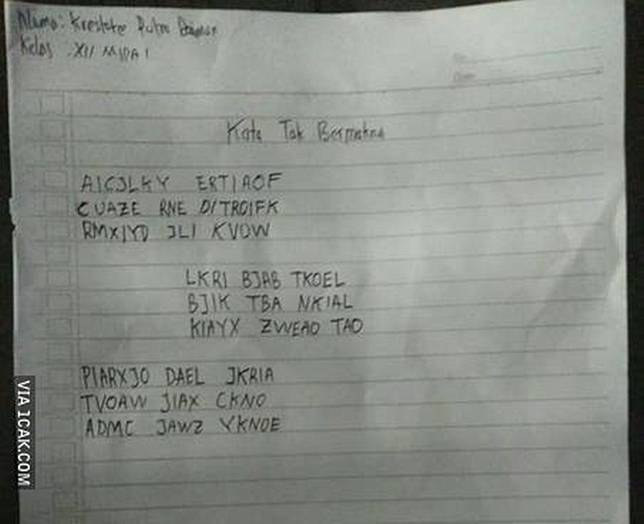 Nama: Putra
Kelas : XII MIPA 1
No.
Date
Kata Tak Bermakna
AICJLKY ERTIAOF
CUAZE RNE D/TROIFK
RMXIYD JLI KVOW
LKRI BJAB TKOEL
BJIK TBA NKIAL
KIAYX ZWEAO TAO
PIARXJO DAEL JKRIA
TVOAW JIAX CKNO
ADMC JAWZ YKNOE
VIA 1CAK.COM